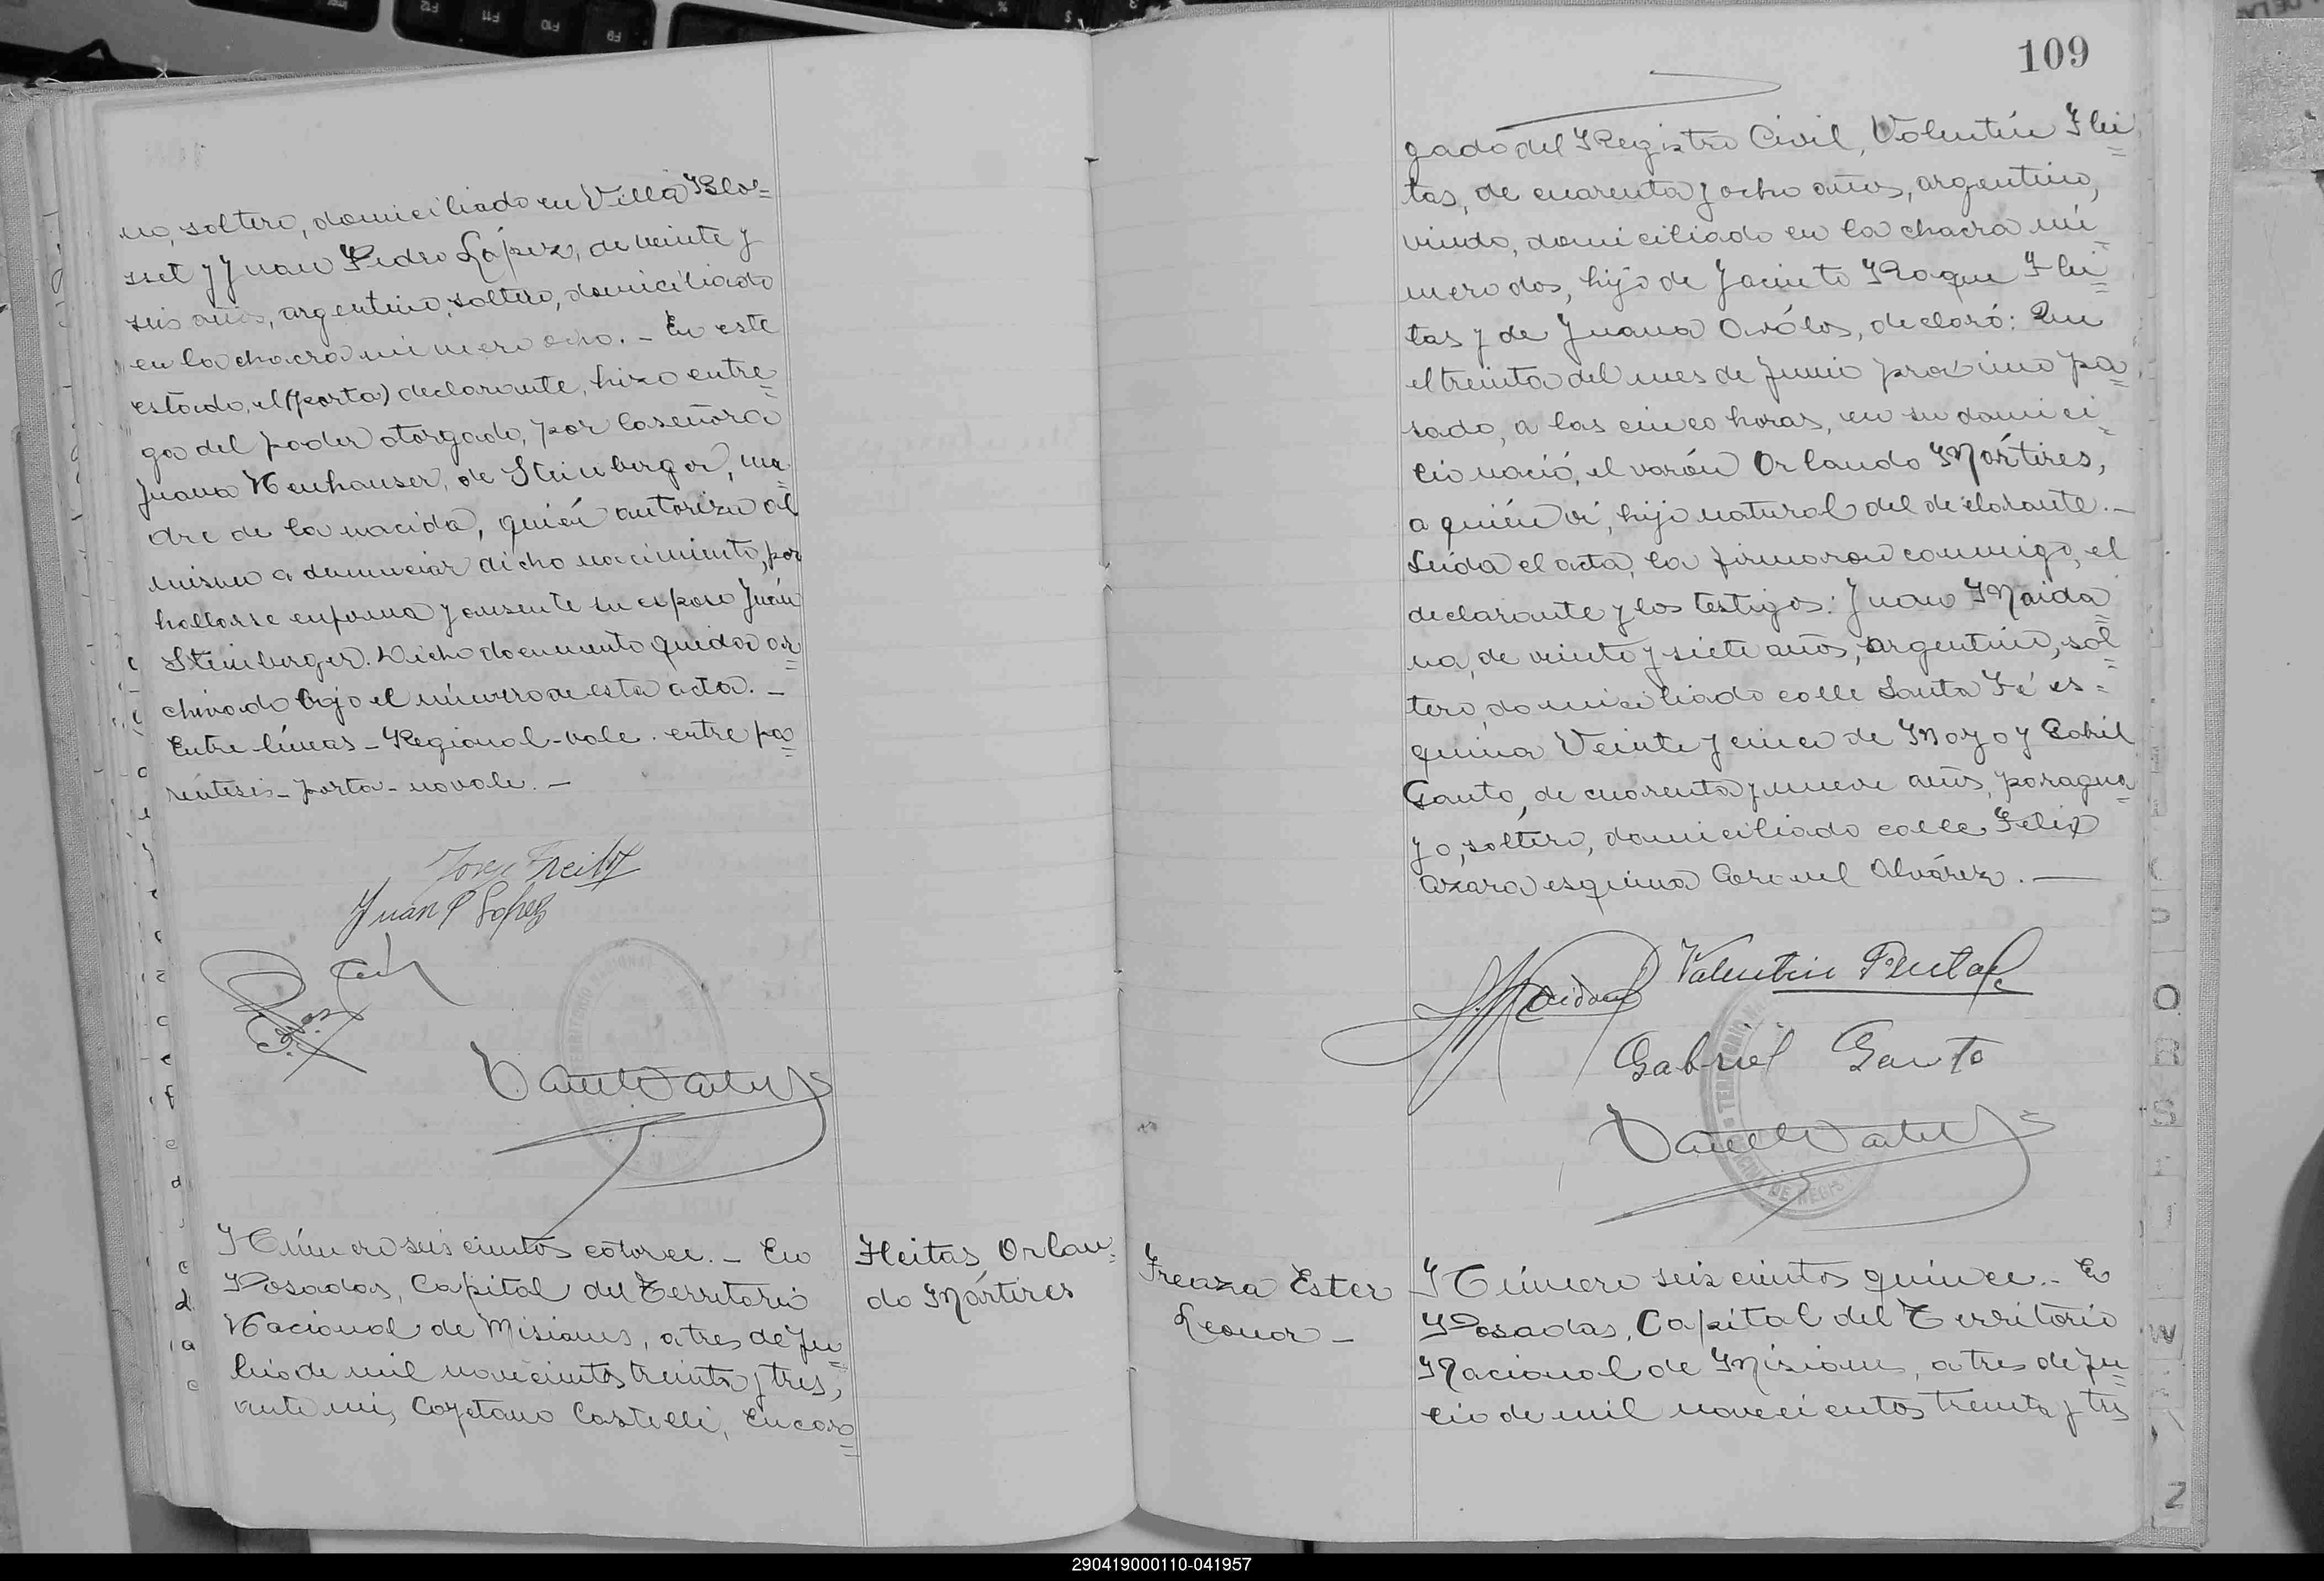 no, soltero, domiciliado en Villa Blos=
set y Juan Pedro López, de veinte y
seis años, argentino, soltero, domiciliado
en la chacra número ocho. - En este
estado, el (porta) declarante, hizo entre=
ga del poder otorgado, por la señora
Juana Neuhauser, de Steinberger, ma=
dre de la nacida, quién autoriza al
mismo a denunciar dicho nacimiento, por
hallarse enferma y ausente su esposo Juan
Steinberger. Dicho documento queda ar=
chivado bajo el número de esta acta. -
Entre líneas - Regional - vale. entre pa=
réntesis - porta - no vale. -
Juan P Lopez
Número seis cientos catorce. - En
Posadas, Capital del Territorio
Nacional de Misiones, a tres de Ju=
lio de mil novecientos treinta y tres,
ante mi, Cayetano Castelli, Encar=
Fleitas, Orlan=
do Mártires
109
gado del Registro Civil, Valentín Flei=
tas, de cuarenta y ocho años, argentino,
viudo, domiciliado en la chacra nú=
mero dos, hijo de Jacinto Roque Flei=
tas y de Juana Avólos, declaró: Que
el treinta del mes de Junio proximo pa=
sado, a las cinco horas, en su domici=
lio nació, el varón Orlando Mártires,
a quién ví, hijo natural del declarante. -
Leida el acta, la firmaron conmigo, el
declarante y los testigos: Juan Maida=
na, de veinte y siete años, argentino, sol=
tero, domiciliado calle Santa Fé es=
quina Veinte y cinco de Mayo y Gabril
Gauto, de cuarenta y nueve años, paragua=
yo, soltero, domiciliado calle Felix
Azara esquina Coronel Alvárez. -
Valentin Fleitas
J. Maidana
Gabriel Gauto
Frenza Ester
Leonor -
Número seis cientos quince. - En
Posadas, Capital del Territorio
Nacional de Misiones, a tres de Ju=
lio de mil novecientos treinta y tres
O
R
S
W
Z
290419000110-041957